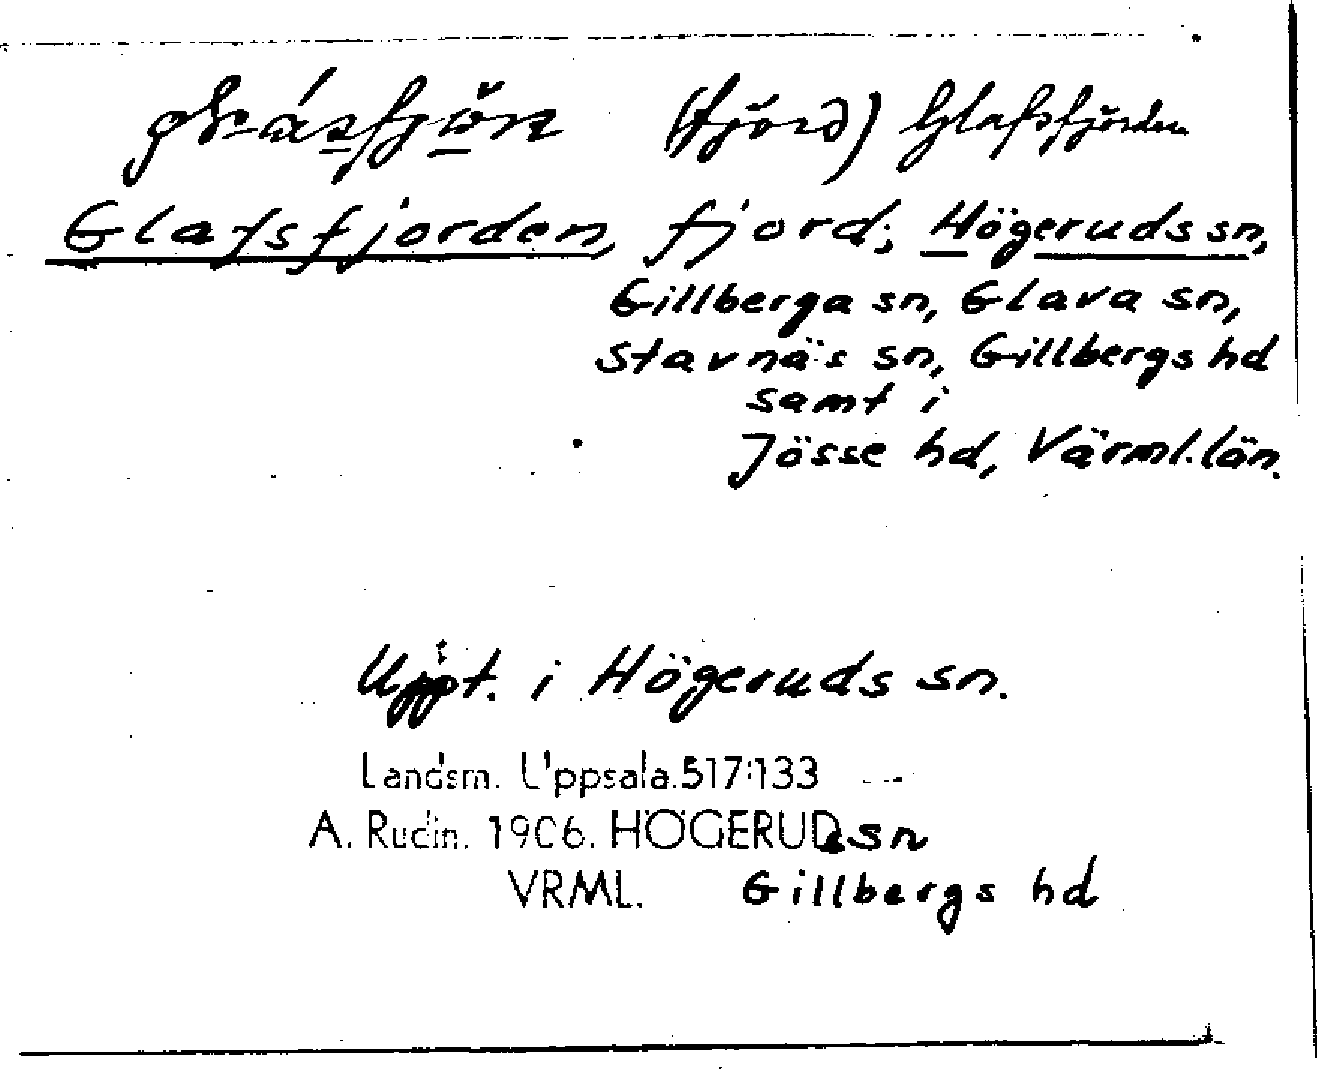 (fjörd) Glafsfjorden
Glafsfjorden, fjord; Högeruds sn,
Gillberga sn, Glava sn,
Stavnäs sn, Gillbergs hd
samt i
Jösse hd, Värml. län.
Uppt. i Högeruds sn.
Landsm. Uppsala. 517:133
A. Rudin. 1906. HÖGERUDs sn
VRML. Gillbergs hd